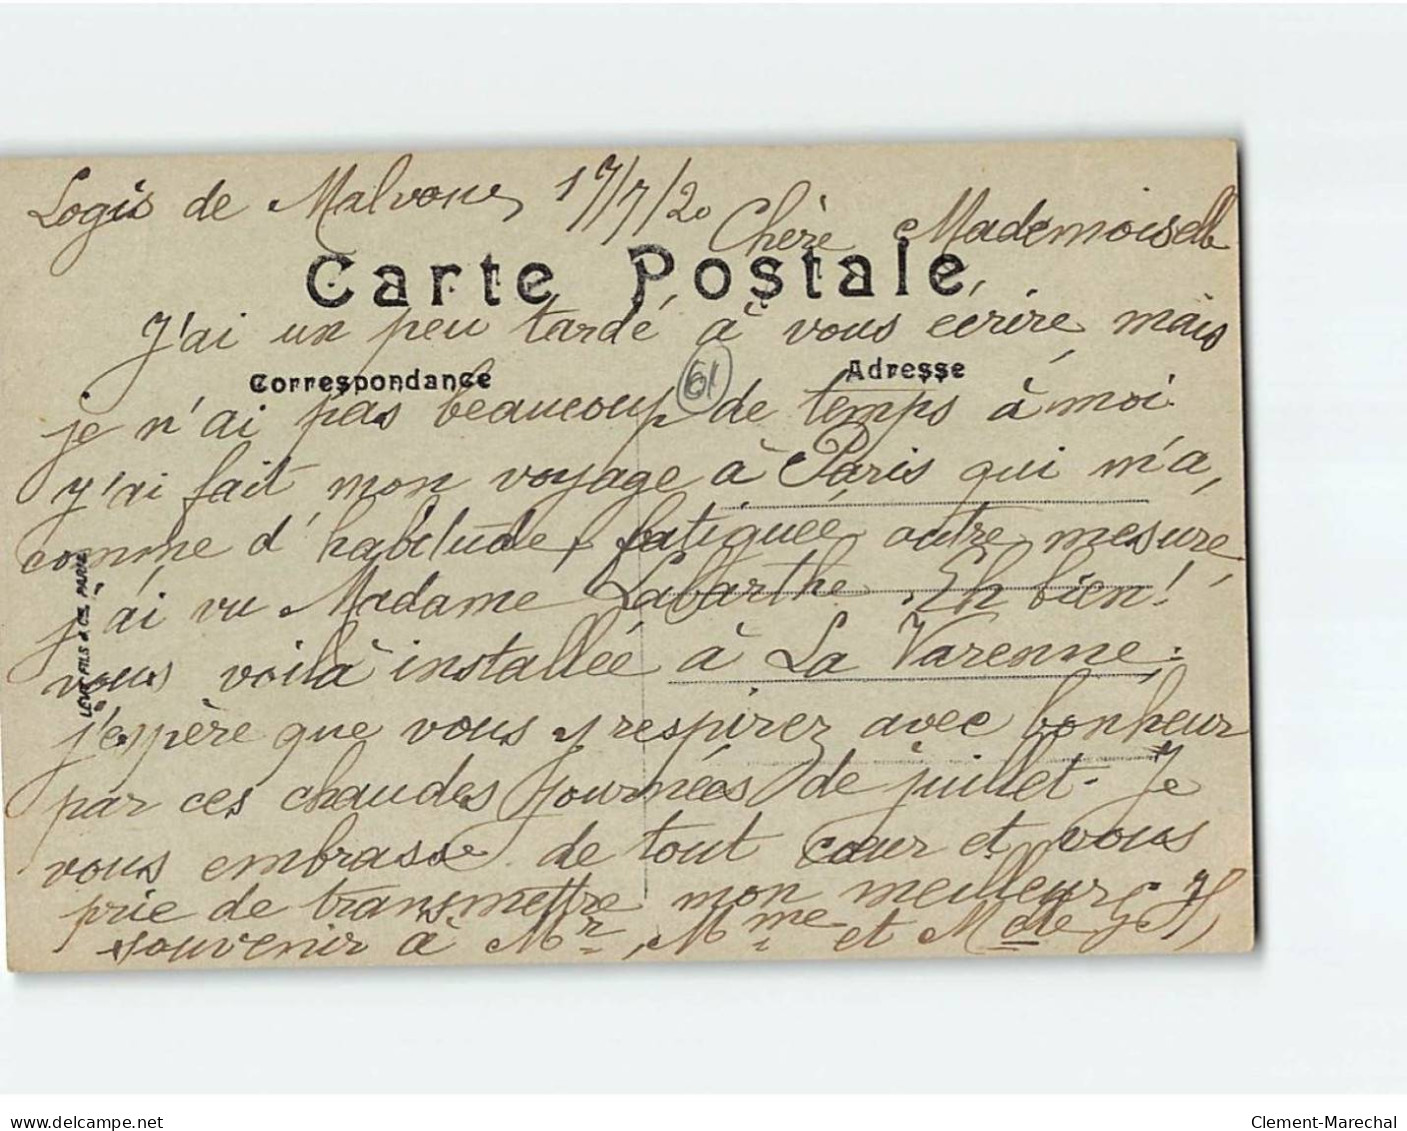 Logis de Malvoue, 17/7/20
Chère Mademoiselle
Carte Postale
J'ai un peu tardé à vous écrire, mais
Correspondance
61
Adresse
je n'ai pas beaucoup de temps à moi
j'ai fait mon voyage à Paris qui m'a,
comme d'habitude, fatiguée outre mesure,
j'ai vu Madame Labarthe. Eh bien!
vous voilà installée à La Varenne.
j'espère que vous y respirez avec bonheur
par ces chaudes journées de juillet. Je
vous embrasse de tout cœur et vous
prie de transmettre mon meilleur
souvenir à Mr, Mme et Mdle
LEVY FILS & CIE. PARIS
delcampe.net
Clement-Marechal